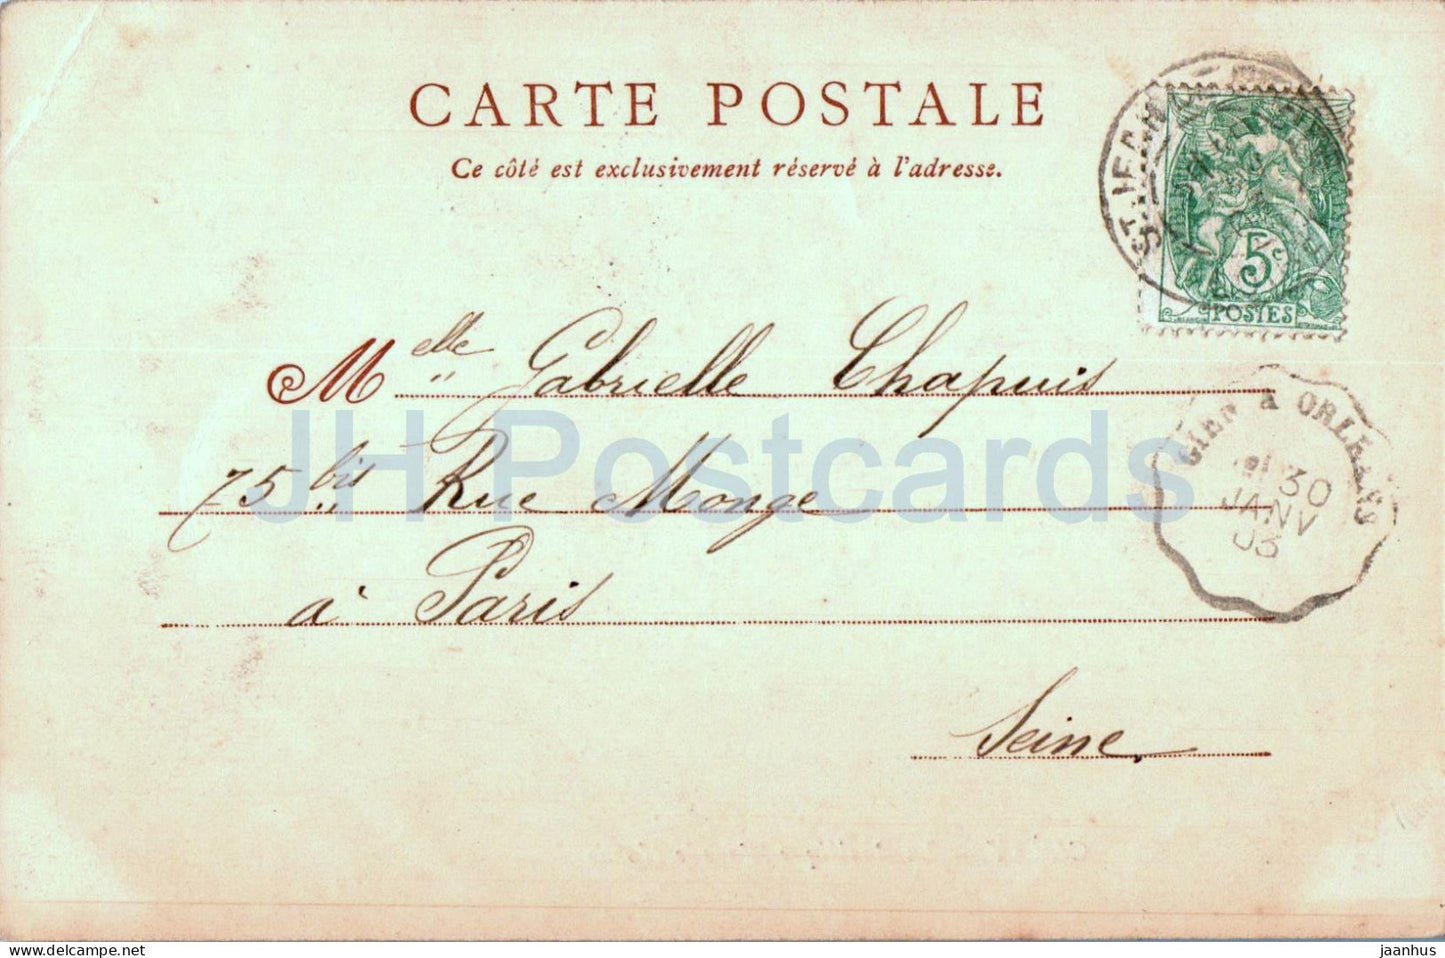 CARTE POSTALE
Ce côté est exclusivement réservé à l'adresse.
ST JEAN
5c
POSTES
Melle Gabrielle Chapuis
75 bis Rue Monge
à Paris
Seine
GIEN à ORLEANS
30
JANV
03
JH Postcards
www.delcampe.net
jaanhus